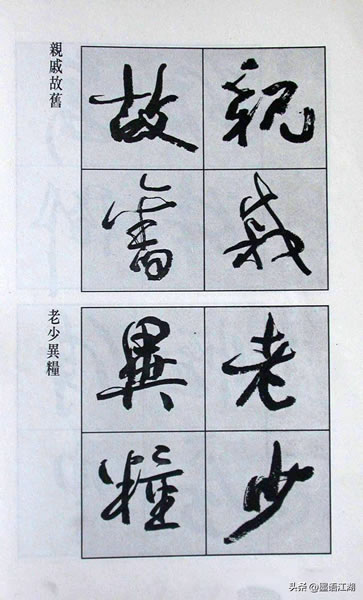 親戚故舊
親戚
故舊
老少異糧
老少
異糧
头条 @墨语江湖